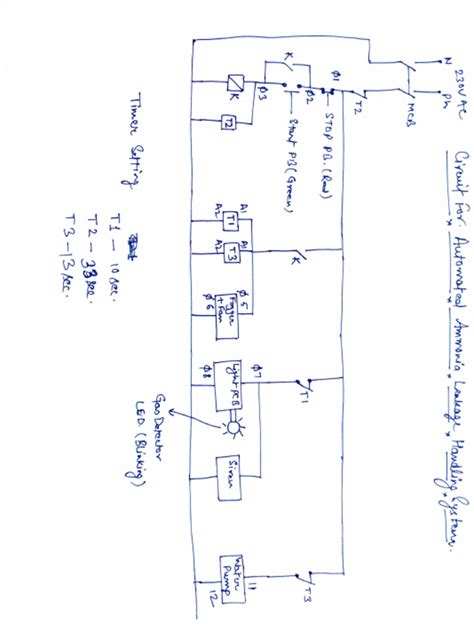 Circuit For Automated Ammonia Leakage Handling System.
230V AC
N
Ph
MCB
T2
STOP P.B. (Red)
Start PB (Green)
φ1
φ2
φ3
K
K
T2
K
A1
T1
A2
A1
T3
A2
φ5
Fogger + Fan
φ6
T1
φ7
Light PCB
φ8
Gas Detector
LED. (Blinking)
Siren
T3
11
Water Pump
12
Timer Setting
T1 - 10 sec.
T2 - 33 sec.
T3 - 13 sec.